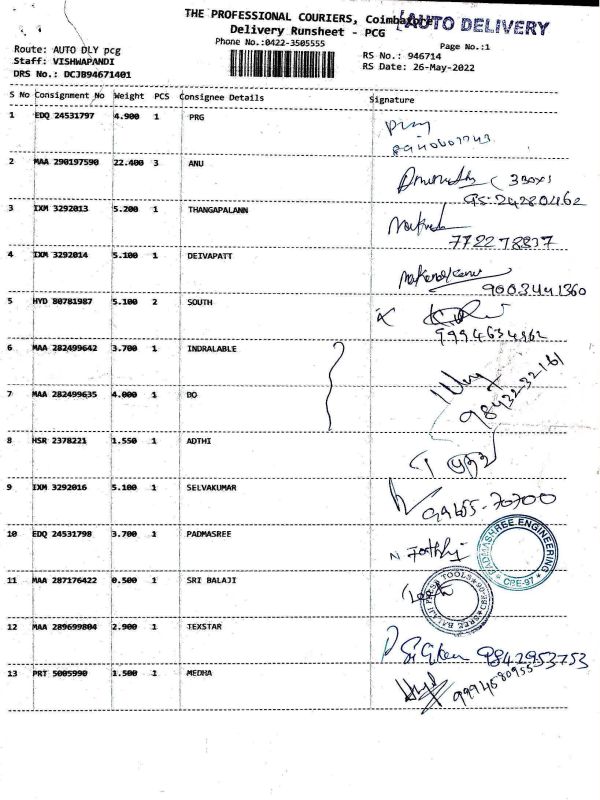 THE PROFESSIONAL COURIERS, Coimbatore
AUTO DELIVERY
Delivery Runsheet - PCG
Phone No.:0422-3505555
Page No.:1
Route: AUTO DLY pcg
Staff: VISHWAPANDI
DRS No.: DCJB94671401
RS No.: 946714
RS Date: 26-May-2022
S No Consignment No Weight PCS Consignee Details Signature
1 EDQ 24531797 4.900 1 PRG
2 MAA 290197590 22.400 3 ANU
(3 BOXS
3 IXM 3292013 5.200 1 THANGAPALANN
772278837
4 IXM 3292014 5.100 1 DEIVAPATT
9003441360
5 HYD 80781987 5.100 2 SOUTH
9994634962
6 MAA 282499642 3.700 1 INDRALABLE
98432-32161
7 MAA 282499635 4.000 1 DO
8 HSR 2378221 1.550 1 ADTHI
9 IXM 3292016 5.100 1 SELVAKUMAR
99655-70700
10 EDQ 24531798 3.700 1 PADMASREE
PADMASHREE ENGINEERING
CBE-97
11 MAA 287176422 0.500 1 SRI BALAJI
SREE BALAJI PRESS TOOLS
12 MAA 289699804 2.900 1 TEXSTAR
9842953753
13 PRT 5005990 1.500 1 MEDHA
9994680955